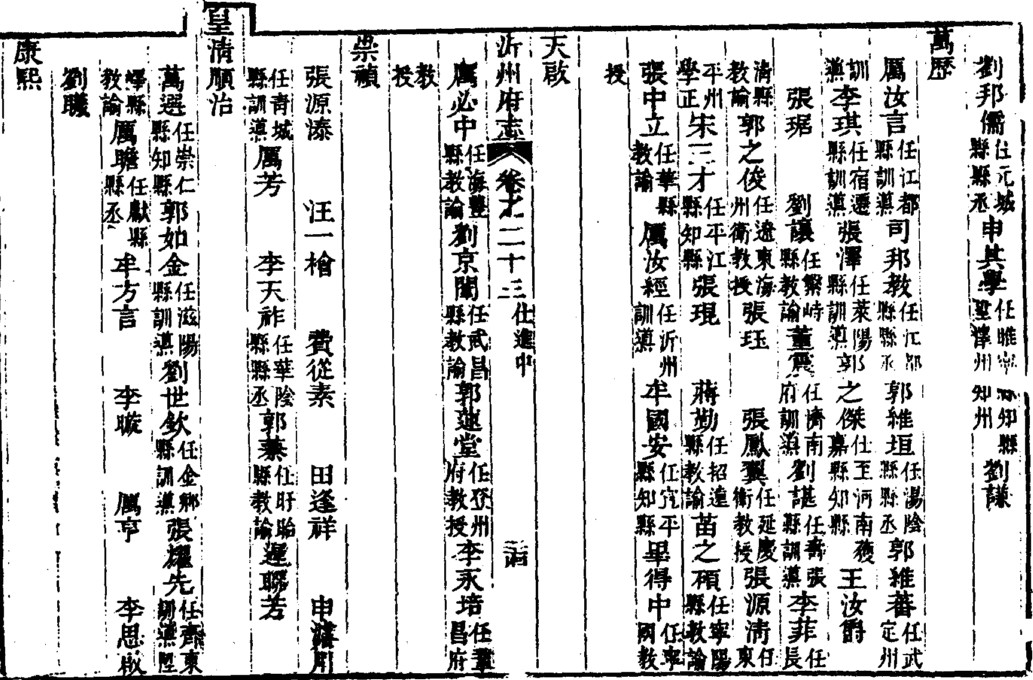 劉邦儒任元城縣縣丞申其學任睢寧縣知縣陞澤州知州劉謙
萬歷
厲汝言任江都縣訓導司邦教任江都縣縣丞郭維垣任湯陰縣縣丞郭維蕃任武定州
訓導李琪任宿遷縣訓導張澤任萊陽縣訓導郭之傑仕至河南獲嘉縣知縣王汝爵
張琚 劉讓任繁峙縣教諭董震任濟南府訓導劉諶任壽張縣訓導李菲任長
清縣教諭郭之俊任遼東海州衛教授張珏 張鳳翼任延慶衛教授張源清任東
平州學正宋三才任平江縣知縣張琨 蔣勤任招遠縣教諭苗之碩任寧陽縣教諭
張中立任華縣教諭厲汝經任沂州訓導牟國安任宜平縣知縣畢得中任寧國教
授
天啟
沂州府志 卷之二十三 仕進中
厲必中任海豐縣教諭劉京聞任武昌縣教諭郭建堂任登州府教授李永培任鞏昌府
教授
崇禎
張源溱 汪一檜 費從素 田逢祥 申
皇清順治
任青城縣訓導厲芳 李天祚任華陰縣縣丞郭蓁任盱眙縣教諭遲聯芳
萬選任崇仁縣知縣郭如金任滋陽縣訓導劉世欽任金鄉縣訓導張耀先任齊東訓導陞
嶧縣教諭厲瞻任獻縣縣丞牟方言 李璇 厲亨 李思
劉職
康熙